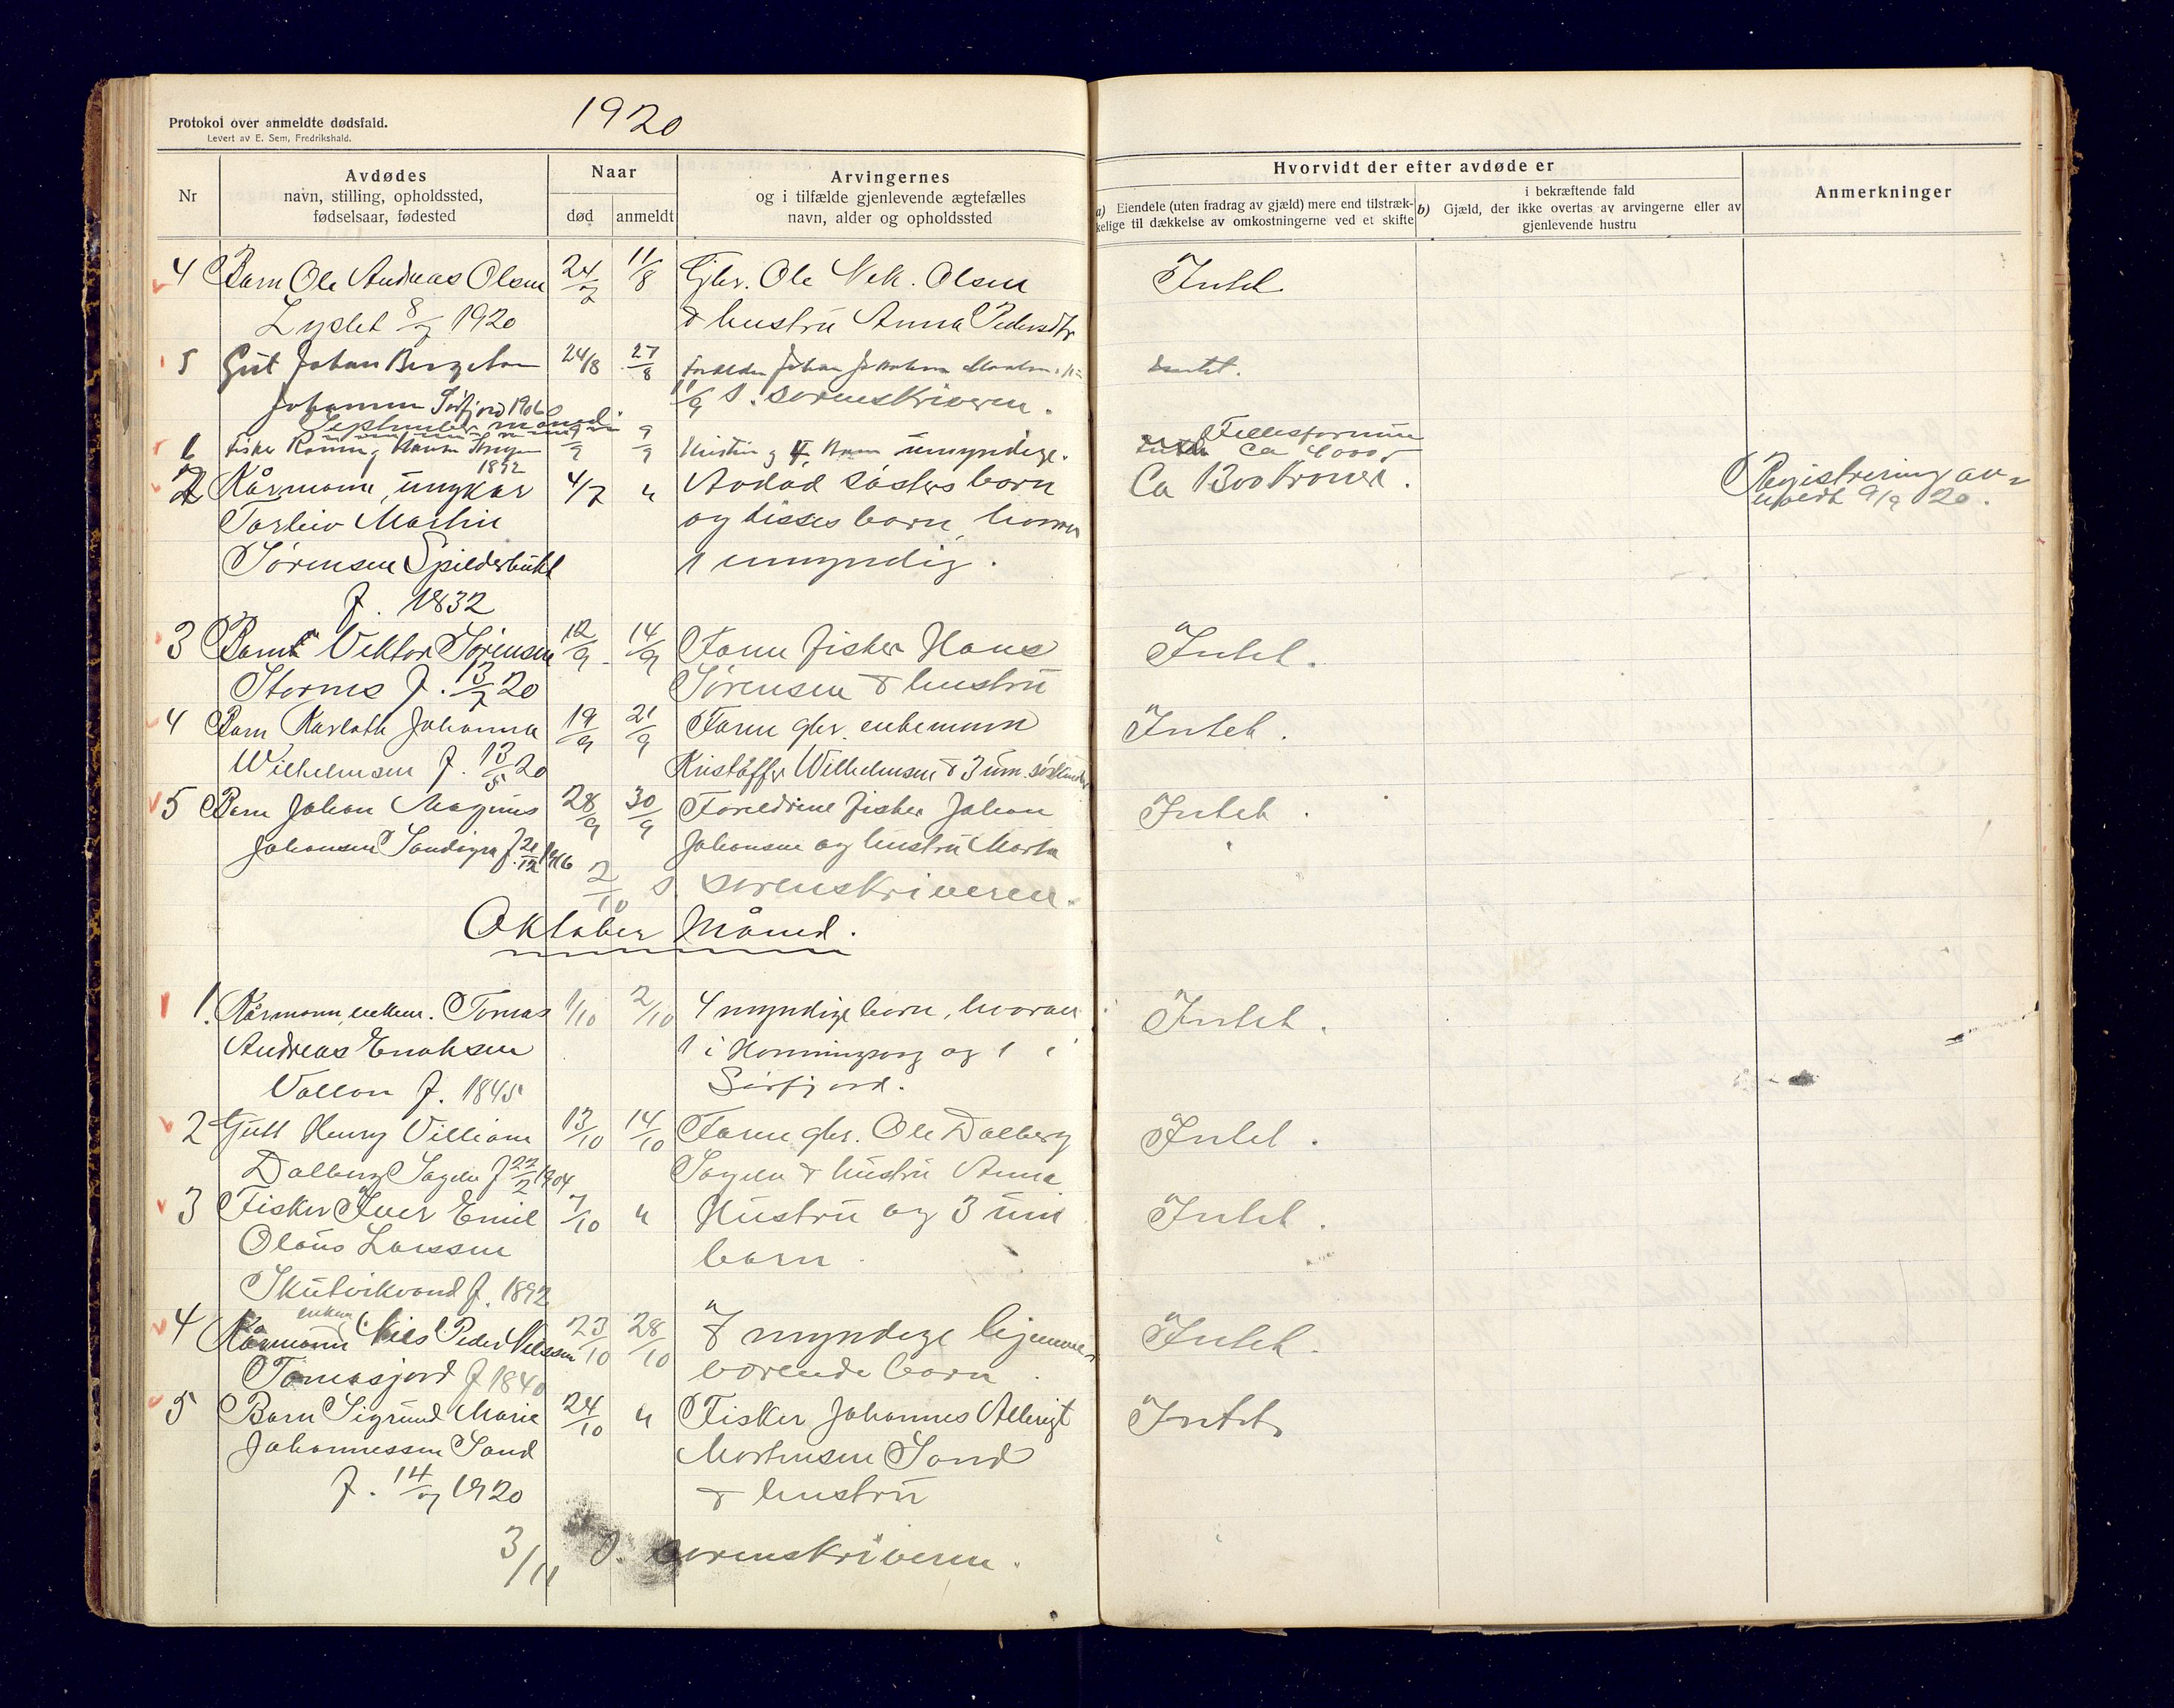 Protokol over anmeldte dødsfald.
Levert av E. Sem, Fredrikshald.
1920
Nr
Avdødes
navn, stilling, opholdssted,
fødselsaar, fødested
Naar
død
anmeldt
Arvingernes
og i tilfælde gjenlevende ægtefælles
navn, alder og opholdssted
Hvorvidt der efter avdøde er
a) Eiendele (uten fradrag av gjæld) mere end tilstræk-
kelige til dækkelse av omkostningerne ved et skifte
i bekræftende fald
b) Gjæld, der ikke overtas av arvingerne eller av
gjenlevende hustru
Anmerkninger
4 Barn Ole Andreas Olsen 24/7 11/8 Gbr. Ole Olsen Intet
8/7 1920 & hustru Anna Pedersdtr
5 Gut Johan 24/8 27/8 Johan Intet.
Johansen Sørfjord 1906 1/9 S. sorenskriveren.
September måned
6 Fisker 9/9 9/9 og 4 umyndige. Fellesformue
1892 Ca 4000
2 Kårmann, ungkar 4/7 " Avdød søsters barn Ca 1300 kroner. Registrering av-
Martin og disses barn, hvorav 9/9 20.
Sørensen Spilderbukt 1 umyndig.
f. 1832
3 Barn Viktor Sørensen 12/9 14/9 Faren fisker Hans Intet.
Stornes f. 13/7 20 Sørensen & hustru
4 Barn Johanna 19/9 21/9 Faren gbr. enkemann Intet.
Wilhelmsen f. 13/5 20 Kristoffer Wilhelmsen & 3 um. søskende
5 Barn Johan Magnus 28/9 30/9 Foreldrene fisker Johan Intet.
Johansen f. 21/12 1916 Johansen og hustru Marta
2/10 S. sorenskriveren.
Oktober Måned.
1. Kårmann, enkem. Tomas 1/10 2/10 4 myndige barn, hvorav Intet.
Andreas Enoksen 1 i Honningsvåg og 1 i
f. 1845 Sørfjord.
2 Gutt Henry Villiam 13/10 14/10 Faren gbr. Ole Dalberg Intet.
Dalberg f. 22/2 1904 & hustru Anna
3 Fisker Iver Emil 7/10 " Hustru og 3 um Intet.
Olaus Larssen barn.
Skutvikvand f. 1892
4 Kårmann enkem Nils Peder Nilssen 23/10 28/10 7 myndige hjemme- Intet.
Tomasjord f 1840 værende barn.
5 Barn Sigrund Marie 24/10 " Fisker Johannes Albrigt Intet.
Johannessen Sand Mortensen Sand
f. 14/7 1920 & hustru
3/11 S. sorenskriveren.